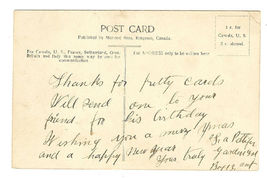 POST CARD
Published by Macrone Bros. Kingston, Canada.
1 c. for
Canada, U. S.
2 c. abroad.
For Canada, U. S., France, Switzerland, Great
Britain and Italy this space may be used for
communication
For ADDRESS only to be written here
Thanks for pretty cards
Will send one to your
friend for his birthday
Wishing you a merry Xmas
and a happy New year
Yours truly
Ont